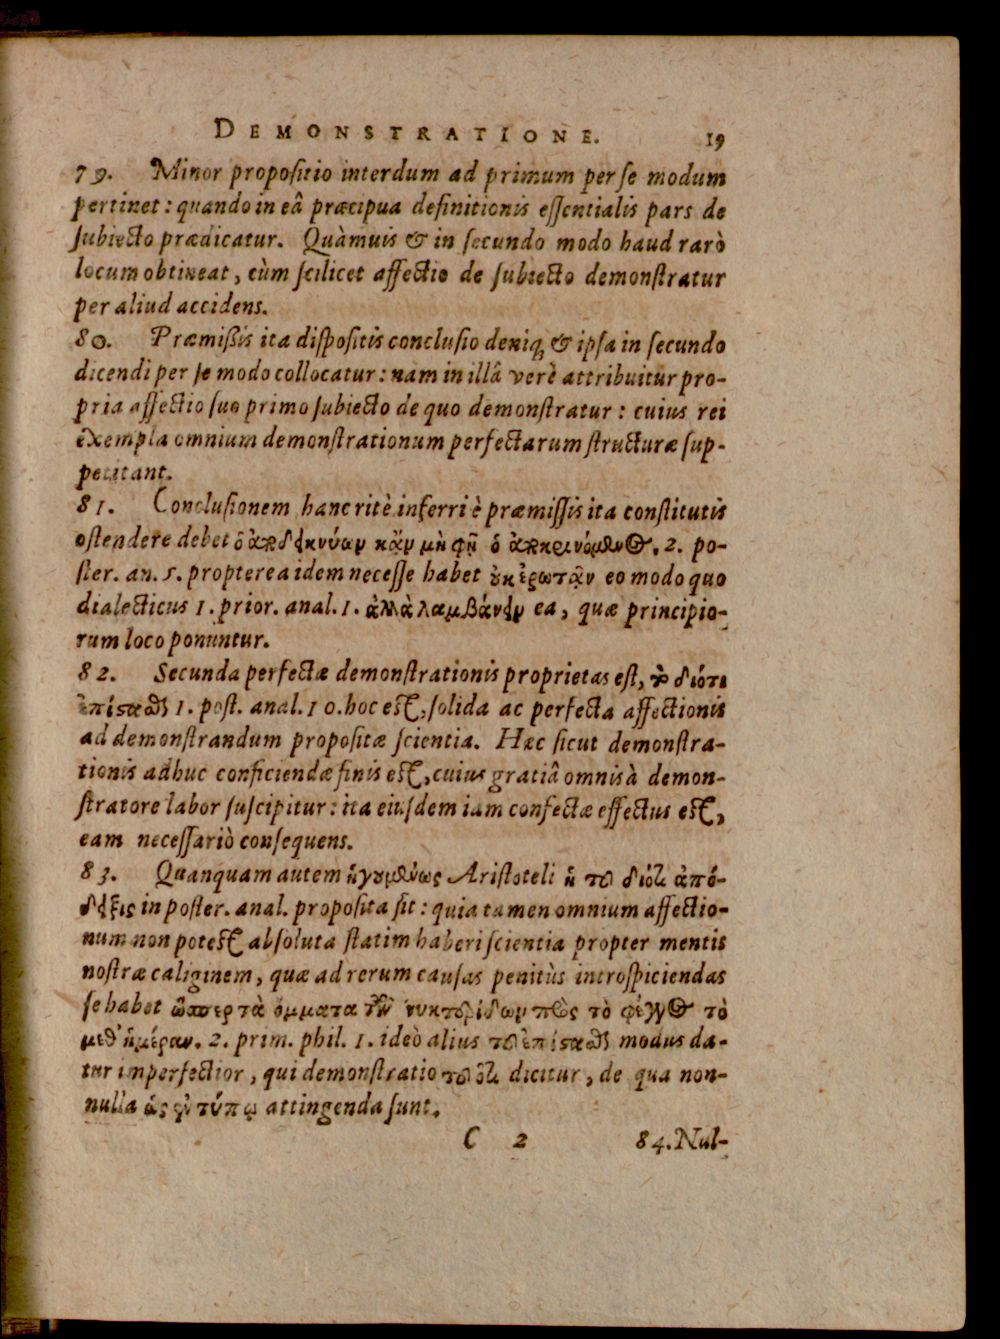 DEMONSTRATIONE. 19
79. Minor propositio interdum ad primum per se modum
pertinet: quando in eâ præcipua definitionis essentialis pars de
subiecto prædicatur. Quàmuis & in secundo modo haud rarò
locum obtineat, cùm scilicet affectio de subiecto demonstratur
per aliud accidens.
80. Præmissis ita dispositis conclusio deniq; & ipsa in secundo
dicendi per se modo collocatur: nam in illâ verè attribuitur pro-
pria affectio suo primo subiecto de quo demonstratur: cuius rei
exempla omnium demonstrationum perfectarum structuræ sup-
peditant.
81. Conclusionem hanc ritè inferri è præmissis ita constitutis
ostendere debet ὁ ἀποδεικνύων κἂν μὴ φῇ ὁ ἀποκρινόμενος. 2. po-
ster. an. 5. propterea idem necesse habet οὐκ ἐρωτᾷν eo modo quo
dialecticus 1. prior. anal. 1. ἀλλὰ λαμβάνειν ea, quæ principio-
rum loco ponuntur.
82. Secunda perfectæ demonstrationis proprietas est, τὸ διότι
ἐπίστασθαι 1. post. anal. 10. hoc est, solida ac perfecta affectionis
ad demonstrandum propositæ scientia. Hæc sicut demonstra-
tionis adhuc conficiendæ finis est, cuius gratiâ omnis à demon-
stratore labor suscipitur: ita eiusdem iam confectæ effectus est,
eam necessariò consequens.
83. Quanquam autem ἡγουμένως Aristoteli ἡ τοῦ διότι ἀπό-
δειξις in poster. anal. proposita sit: quia tamen omnium affectio-
num non potest absoluta statim haberi scientia propter mentis
nostræ caliginem, quæ ad rerum causas penitùs introspiciendas
se habet ὥσπερ τὰ ὄμματα τῶν νυκτερίδων πρὸς τὸ φέγγος τὸ
μεθ' ἡμέραν. 2. prim. phil. 1. ideò alius τοῦ ἐπίστασθαι modus da-
tur imperfectior, qui demonstratio τοῦ ὅτι dicitur, de qua non-
nulla ὡς ἐν τύπῳ attingenda sunt.
C 2 84. Nul-